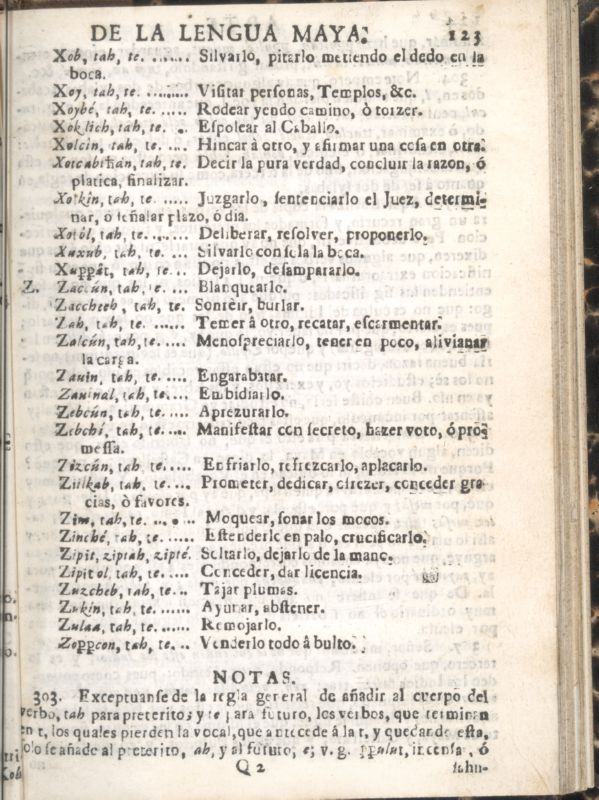 DE LA LENGUA MAYA. 123
Xob, tah, te. ...... Silvarlo, pitarlo metiendo el dedo en la
boca.
Xoy, tah, te. ......... Visitar personas, Templos, &c.
Xoybé, tah, te. ...... Rodear yendo camino, ò torzer.
Xoklich, tah, te. . . Espolear al Caballo.
Xolcin, tah, te. .... Hincar â otro, y afirmar una cosa en otra.
Xotcabthán, tah, te. Decir la pura verdad, concluir la razon, ó
platica, finalizar.
Xotkin, tah, te. .... Juzgarlo, sentenciarlo el Juez, determi-
nar, ò señalar plazo, ò dia.
Xotól, tah, te. ....... Deliberar, resolver, proponerlo.
Xuxub, tah, te. .... Silvarlo con sola la boca.
Xuppât, tah, te. ... Dejarlo, desampararlo.
Z. Zaccún, tah, te. .. Blanquearlo.
Zaccheeh, tah, te. Sonreir, burlar.
Zah, tah, te. ...... Temer â otro, recatar, escarmentar.
Zalcún, tah, te. .... Menospreciarlo, tener en poco, alivianar
la carga.
Zauin, tah, te. .... Engarabatar.
Zauinal, tah, te. .... Embidiarlo.
Zebcún, tah, te. .... Aprezurarlo.
Zebchí, tah, te. .... Manifestar con secreto, hazer voto, ó pro-
messa.
Zizcún, tah, te. .... Enfriarlo, refrezcarlo, aplacarlo.
Ziilkab, tah, te. ... Prometer, dedicar, ofrezer, conceder gra-
cias, ò favores.
Zim, tah, te. ...... Moquear, sonar los mocos.
Zinché, tah, te. .... Estenderlo en palo, crucificarlo.
Zipit, ziptah, zipté. Soltarlo, dejarlo de la mano.
Zipit ol, tah, te. .... Conceder, dar licencia.
Zuzcheb, tah, te. .. Tajar plumas.
Zukin, tah, te. ...... Ayunar, abstener.
Zulaa, tah, te. ...... Remojarlo.
Zoppcon, tah, te. .. Venderlo todo â bulto.
NOTAS.
303. Exceptuanse de la regla general de añadir al cuerpo del
verbo, tah para preteritos y te para futuro, los verbos, que terminan
en t, los quales pierden la vocal, que antecede â la t, y quedando esta,
solo se añade al preterito, ah, y al futuro, e; v. g. ppulut, incensa, ó
Q 2 sahu-